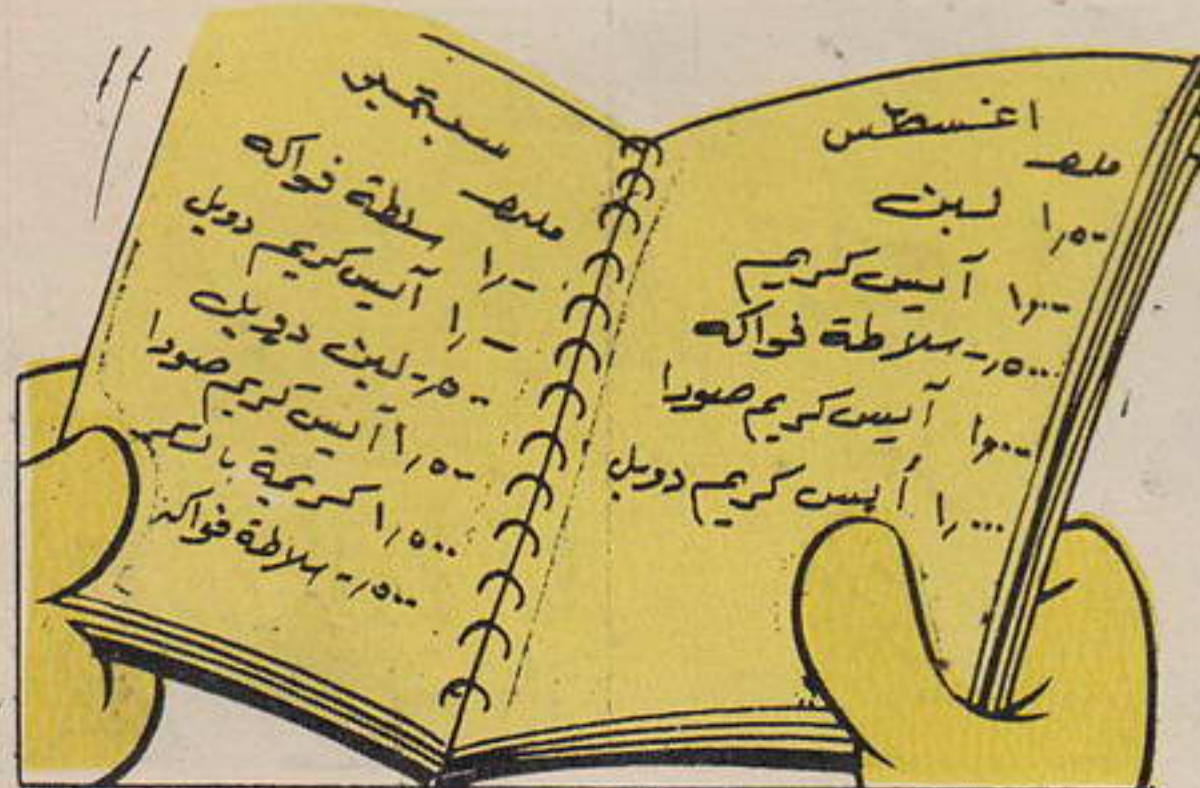 اغسطس
مليم
١,٥٠ لبن
١,٠٠ آيس كريم
-,٥٠٠ سلاطة فواكه
١,٠٠٠ آيس كريم صودا
١,٠٠٠ أيس كريم دوبل
سبتمبر
مليم
١,- سلطة فواكه
١,- آليس كريم دوبل
-,٥٠٠ لبن دوبل
١,٥٠٠ آليس كريم صودا
١,٥٠٠ كريمة
-,٥٠٠ سلاطة فواكه